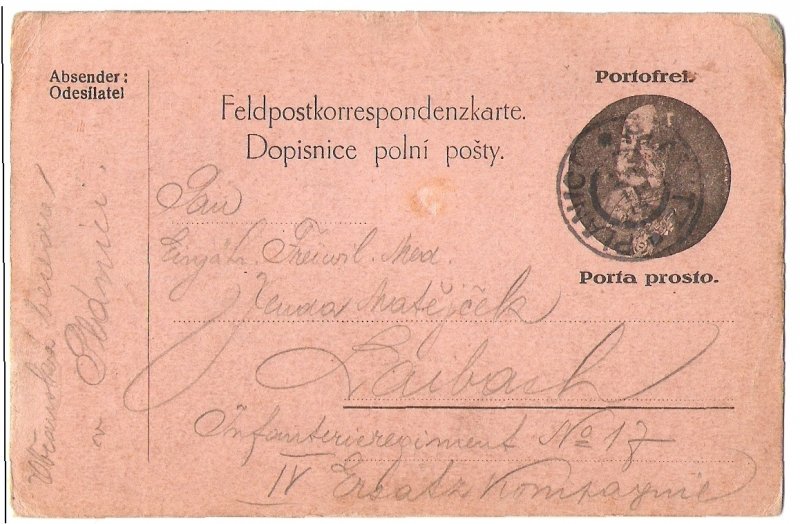 Absender:
Odesílatel
Feldpostkorrespondenzkarte.
Dopisnice polní pošty.
Portofrei.
PLANICE
Porta prosto.
Pan
Einjähr. Freiwil. Med.
Venda Matějíček
Laibach
Infanterieregiment No 17
IV Ersatz Kompagnie